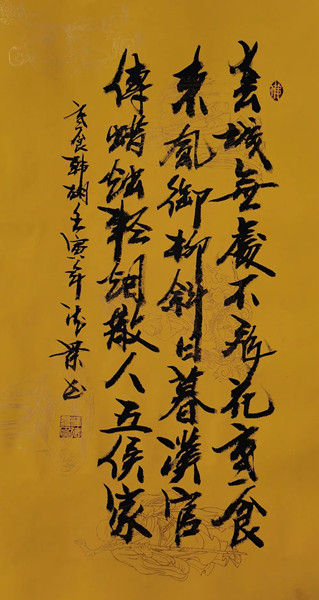 春城無處不飛花寒食
東風御柳斜日暮漢宮
傳蜡燭輕烟散入五侯家
寒食韩翃壬寅年书